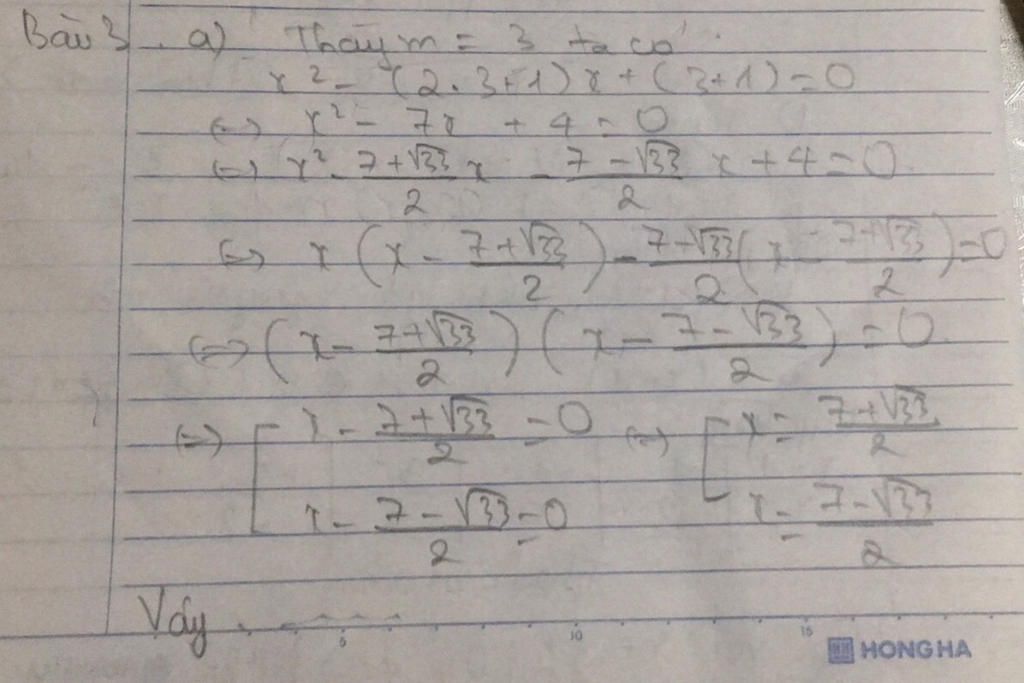 Bài 3. a) Thay m = 3 ta có:
x² - (2.3+1)x + (3+1) = 0
⇔ x² - 7x + 4 = 0
⇔ x² - (7+√33)/2 x - (7-√33)/2 x + 4 = 0
⇔ x (x - (7+√33)/2) - (7-√33)/2 (x - (7+√33)/2) = 0
⇔ (x - (7+√33)/2) (x - (7-√33)/2) = 0
⇔ [ x - (7+√33)/2 = 0 ⇔ [ x = (7+√33)/2
x - (7-√33)/2 = 0 x = (7-√33)/2
Vậy . - - - - -
5 10 15
HONG HA